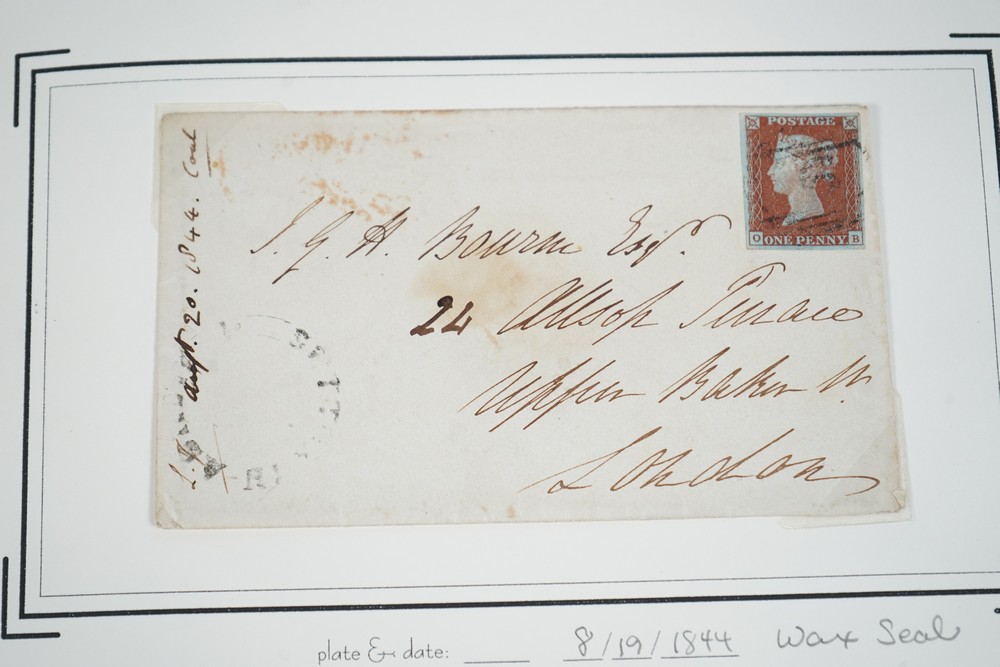 POSTAGE
ONE PENNY
O B
J. G. H. Bourne Esqr.
24 Allsop Terrace
Upper Baker St.
London
Augt. 20. 1844.
plate & date: 8/19/1844 Wax Seal